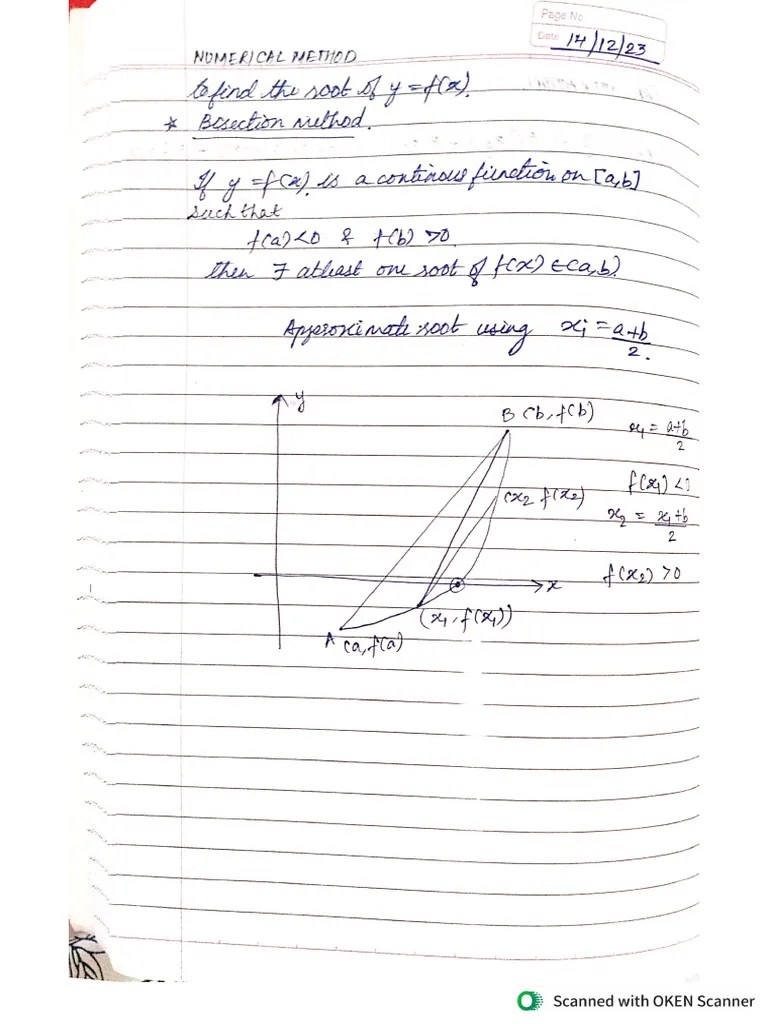 Page No
Date 14/12/23
NUMERICAL METHOD
to find the root of y = f(x).
* Bisection method.
If y = f(x) is a continous function on [a,b]
such that
f(a) <0 & f(b) >0
then ∃ atleast one root of f(x) ∈ (a,b)
Approximate root using x₁ = a+b/2.
y
B (b, f(b)
x₁ = a+b/2
(x₂ f(x₂)
f(x₁) <0
x₂ = x₁+b/2
f(x₂) >0
x
(x₁, f(x₁))
A (a, f(a)
Scanned with OKEN Scanner